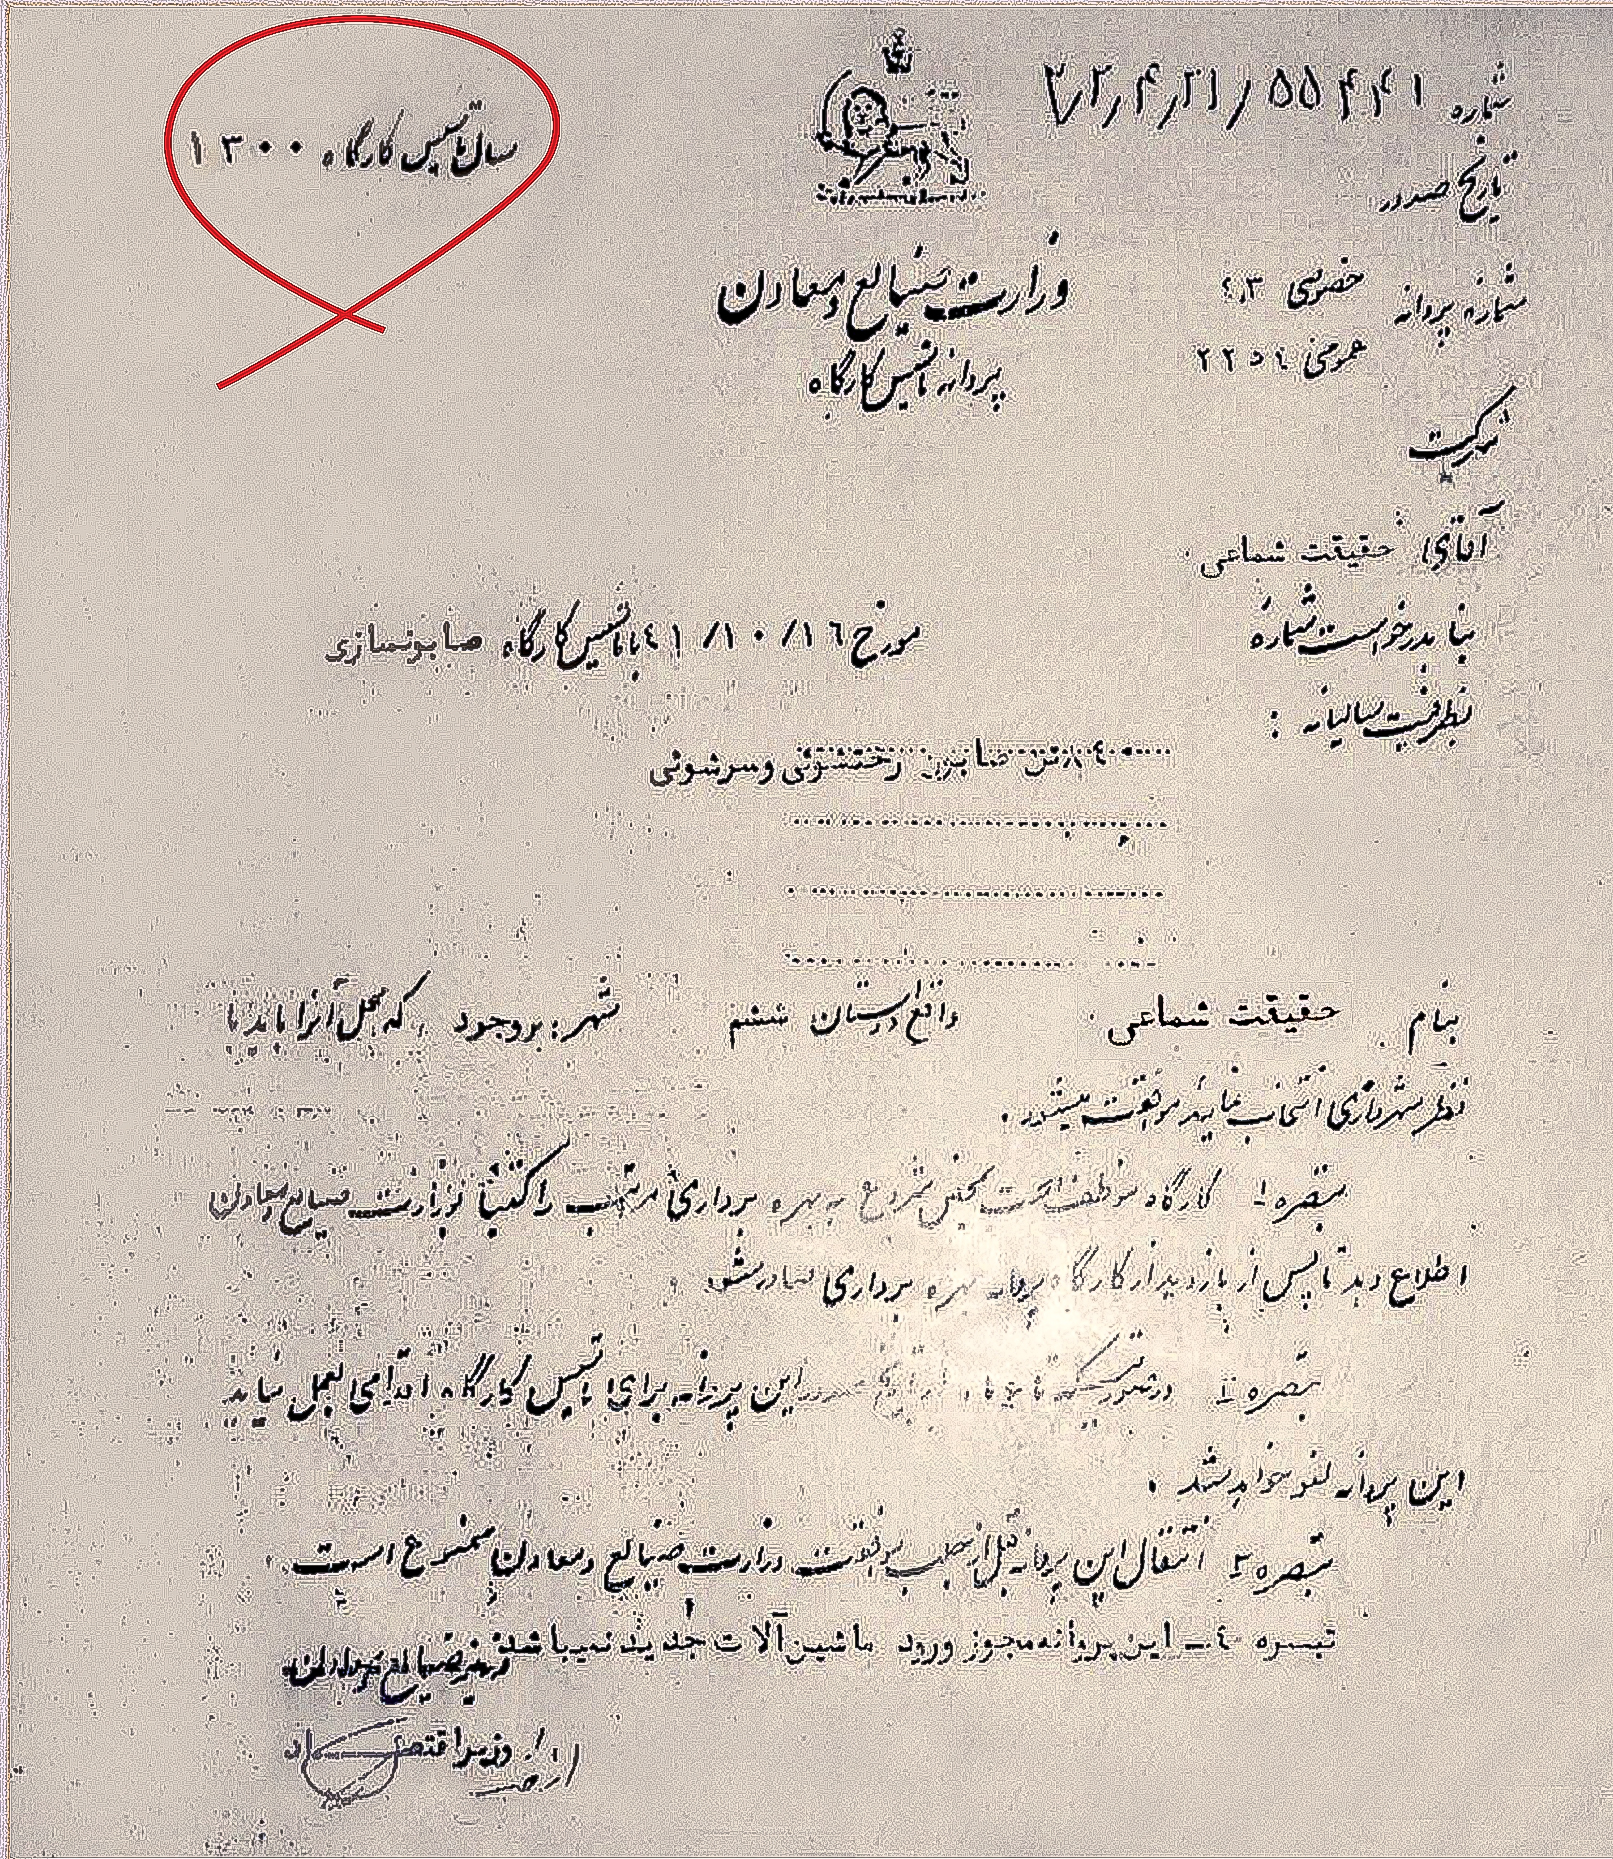 سال تأسیس کارگاه ۱۳۰۰
شماره ۵۵۴۴۱
تاریخ صدور
وزارت صنایع و معادن
پروانه تأسیس کارگاه
شماره پروانه خصوصی ٤٠٣
عمومی
شرکت
آقای حقیقت شماعی
بنا بدرخواست شماره مورخ ١٦/ ١٠/ ٤١ با تأسیس کارگاه صابونسازی
بظرفیت سالیانه :
تن صابون رختشوئی وسرشوئی
بنام حقیقت شماعی واقع در ششم شهر: بروجرد که محل آنرا باید با
نظر شهرداری انتخاب نمایند موافقت میشود .
تبصره ۱ کارگاه موظف است بمحض شروع به بهره برداری مراتب را کتباً بوزارت صنایع و معادن
اطلاع دهد تا پس از بازدید از کارگاه پروانه بهره برداری صادر شود .
تبصره ۲ در صورتیکه تا ماه از تاریخ صدور این پروانه برای تأسیس کارگاه اقدامی بعمل نیاید
این پروانه لغو خواهد شد .
تبصره ۳ انتقال این پروانه قبل از جلب موافقت وزارت صنایع و معادن ممنوع است .
تبصره ٤ــ این پروانه مجوز ورود ماشین آلات جدید نمیباشد
وزیر صنایع و معادن
وزیر اقتصاد